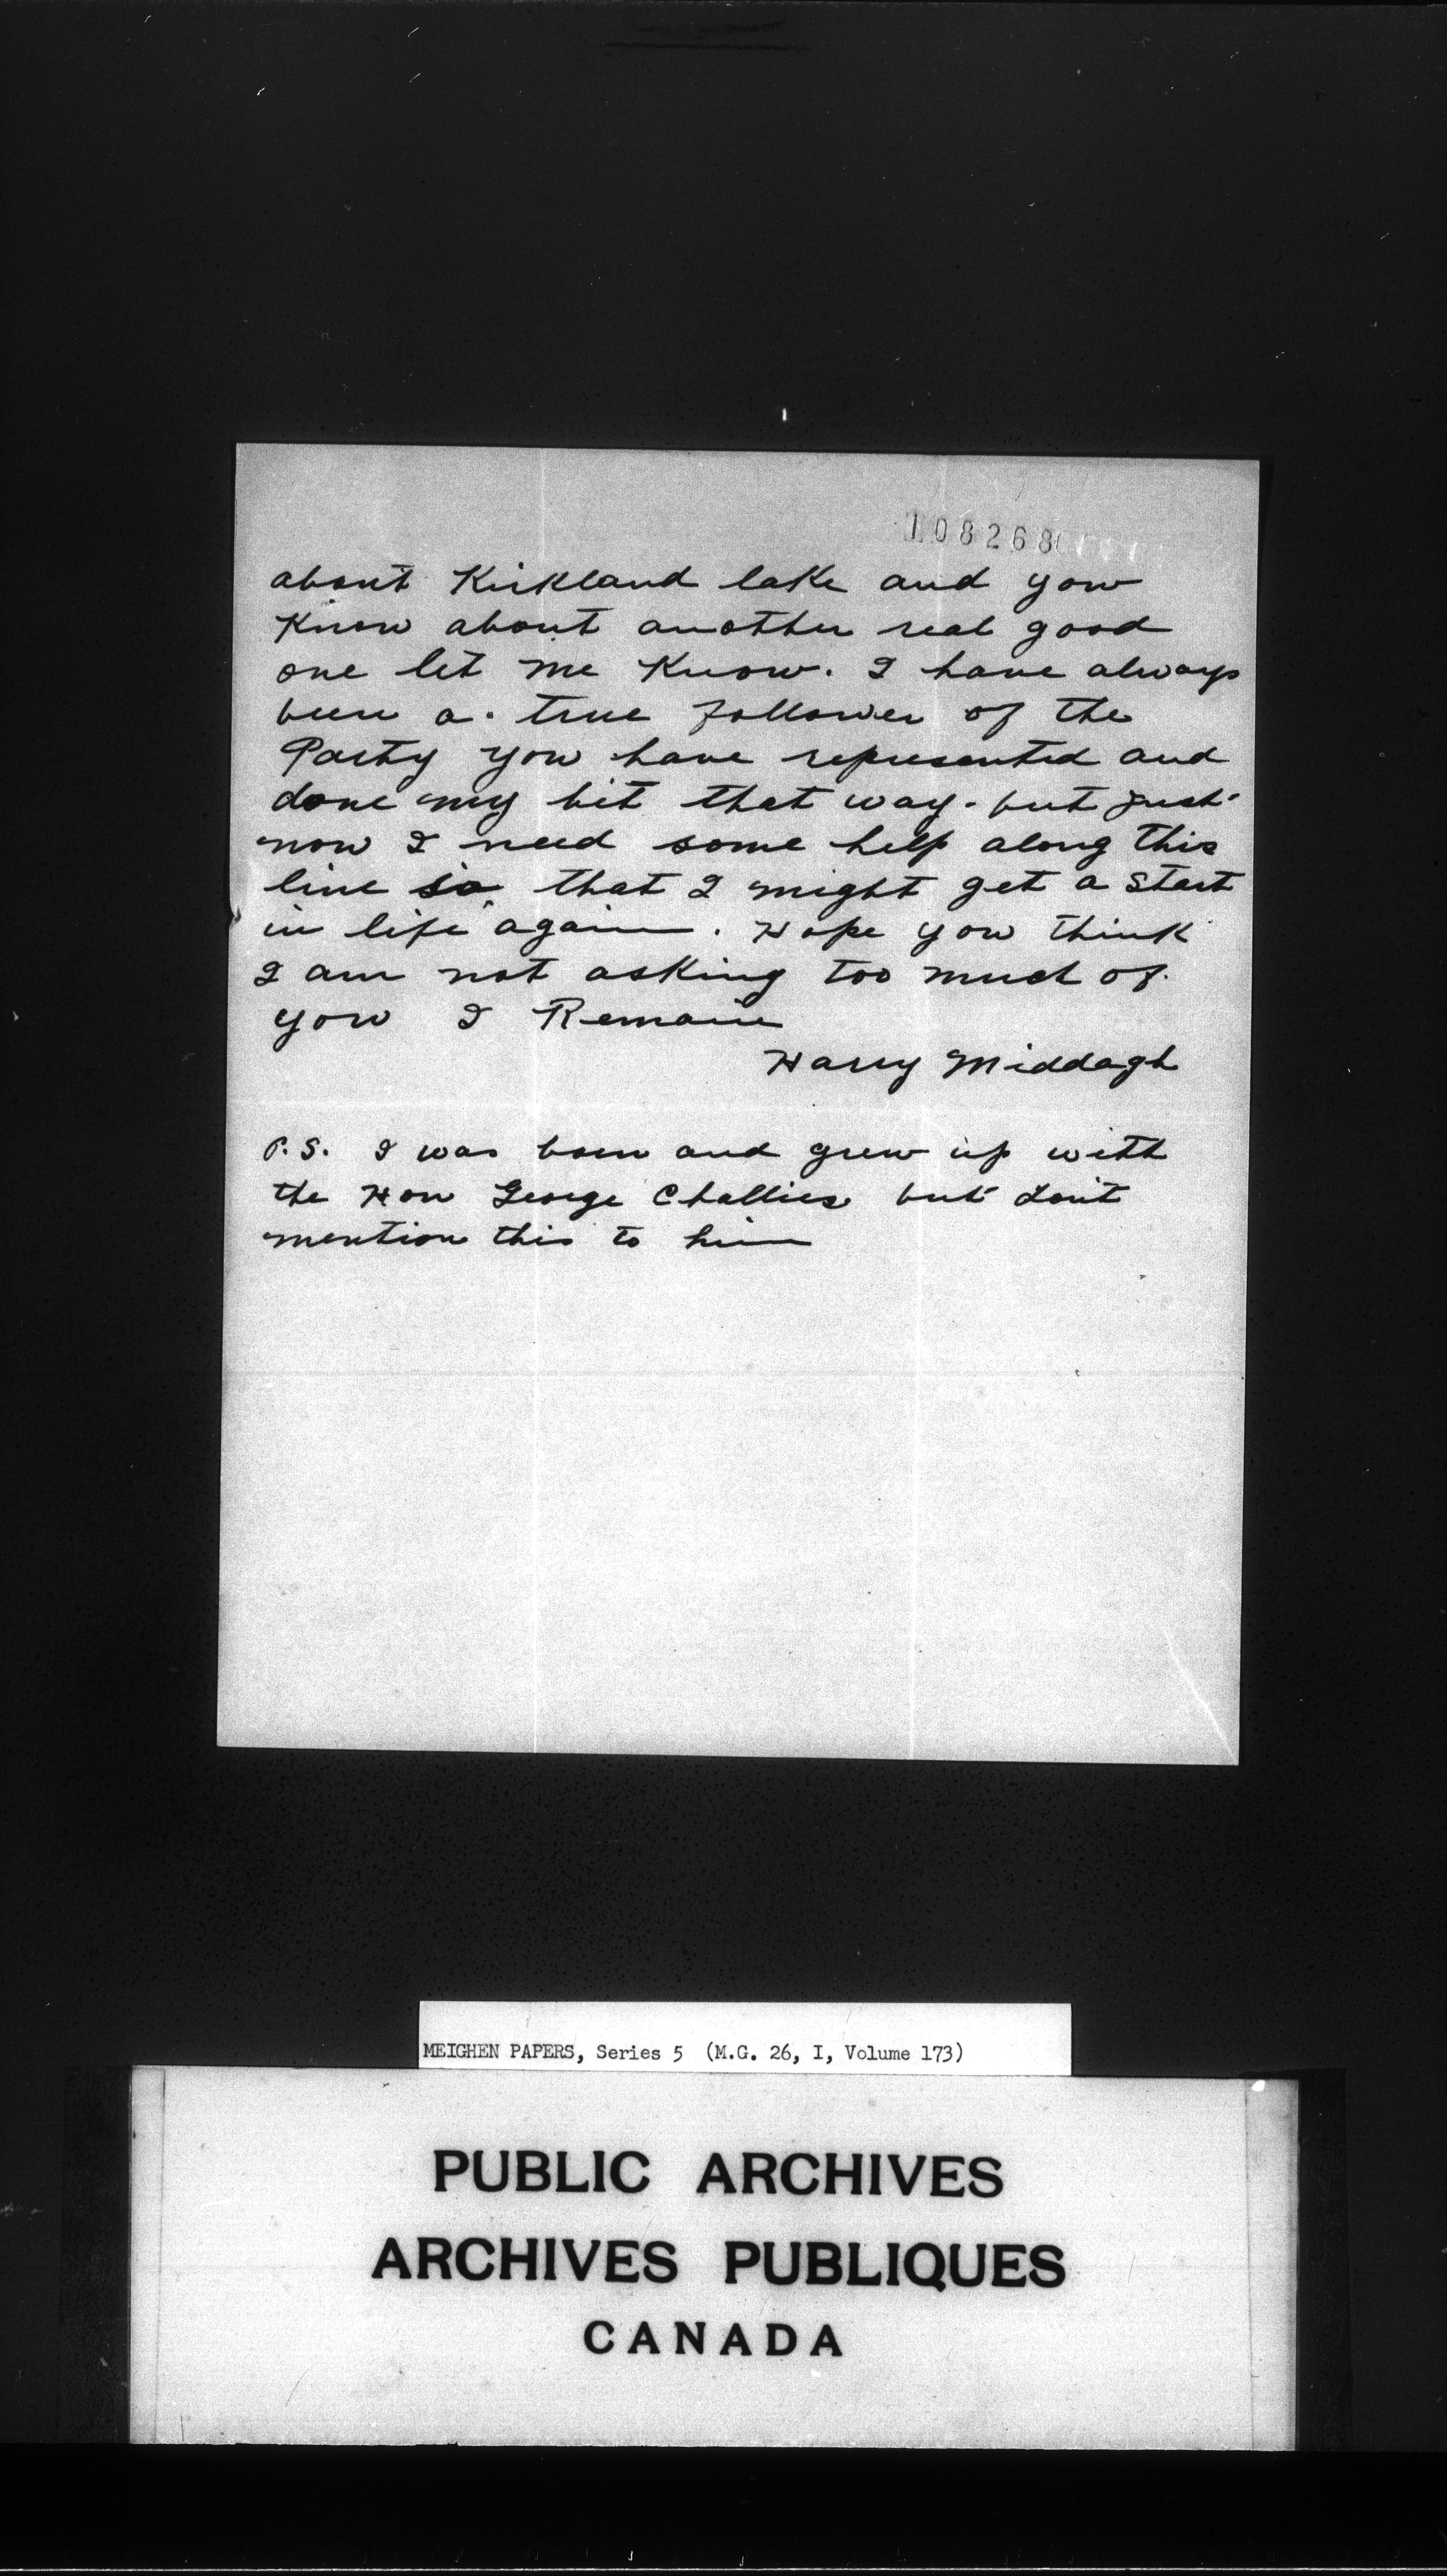 108268
about Kirkland lake and you
Know about another real good
one let me Know. I have always
been a. true follower of the
Party you have represented and
done my bit that way. but just
now I need some help along this
line so that I might get a start
in life again. Hope you think
I am not asking too much of.
you I Remain
Harry Middagh
P.S. I was born and grew up with
the Hon George Challies but don't
mention this to him
MEIGHEN PAPERS, Series 5 (M.G. 26, I, Volume 173)
PUBLIC ARCHIVES
ARCHIVES PUBLIQUES
CANADA